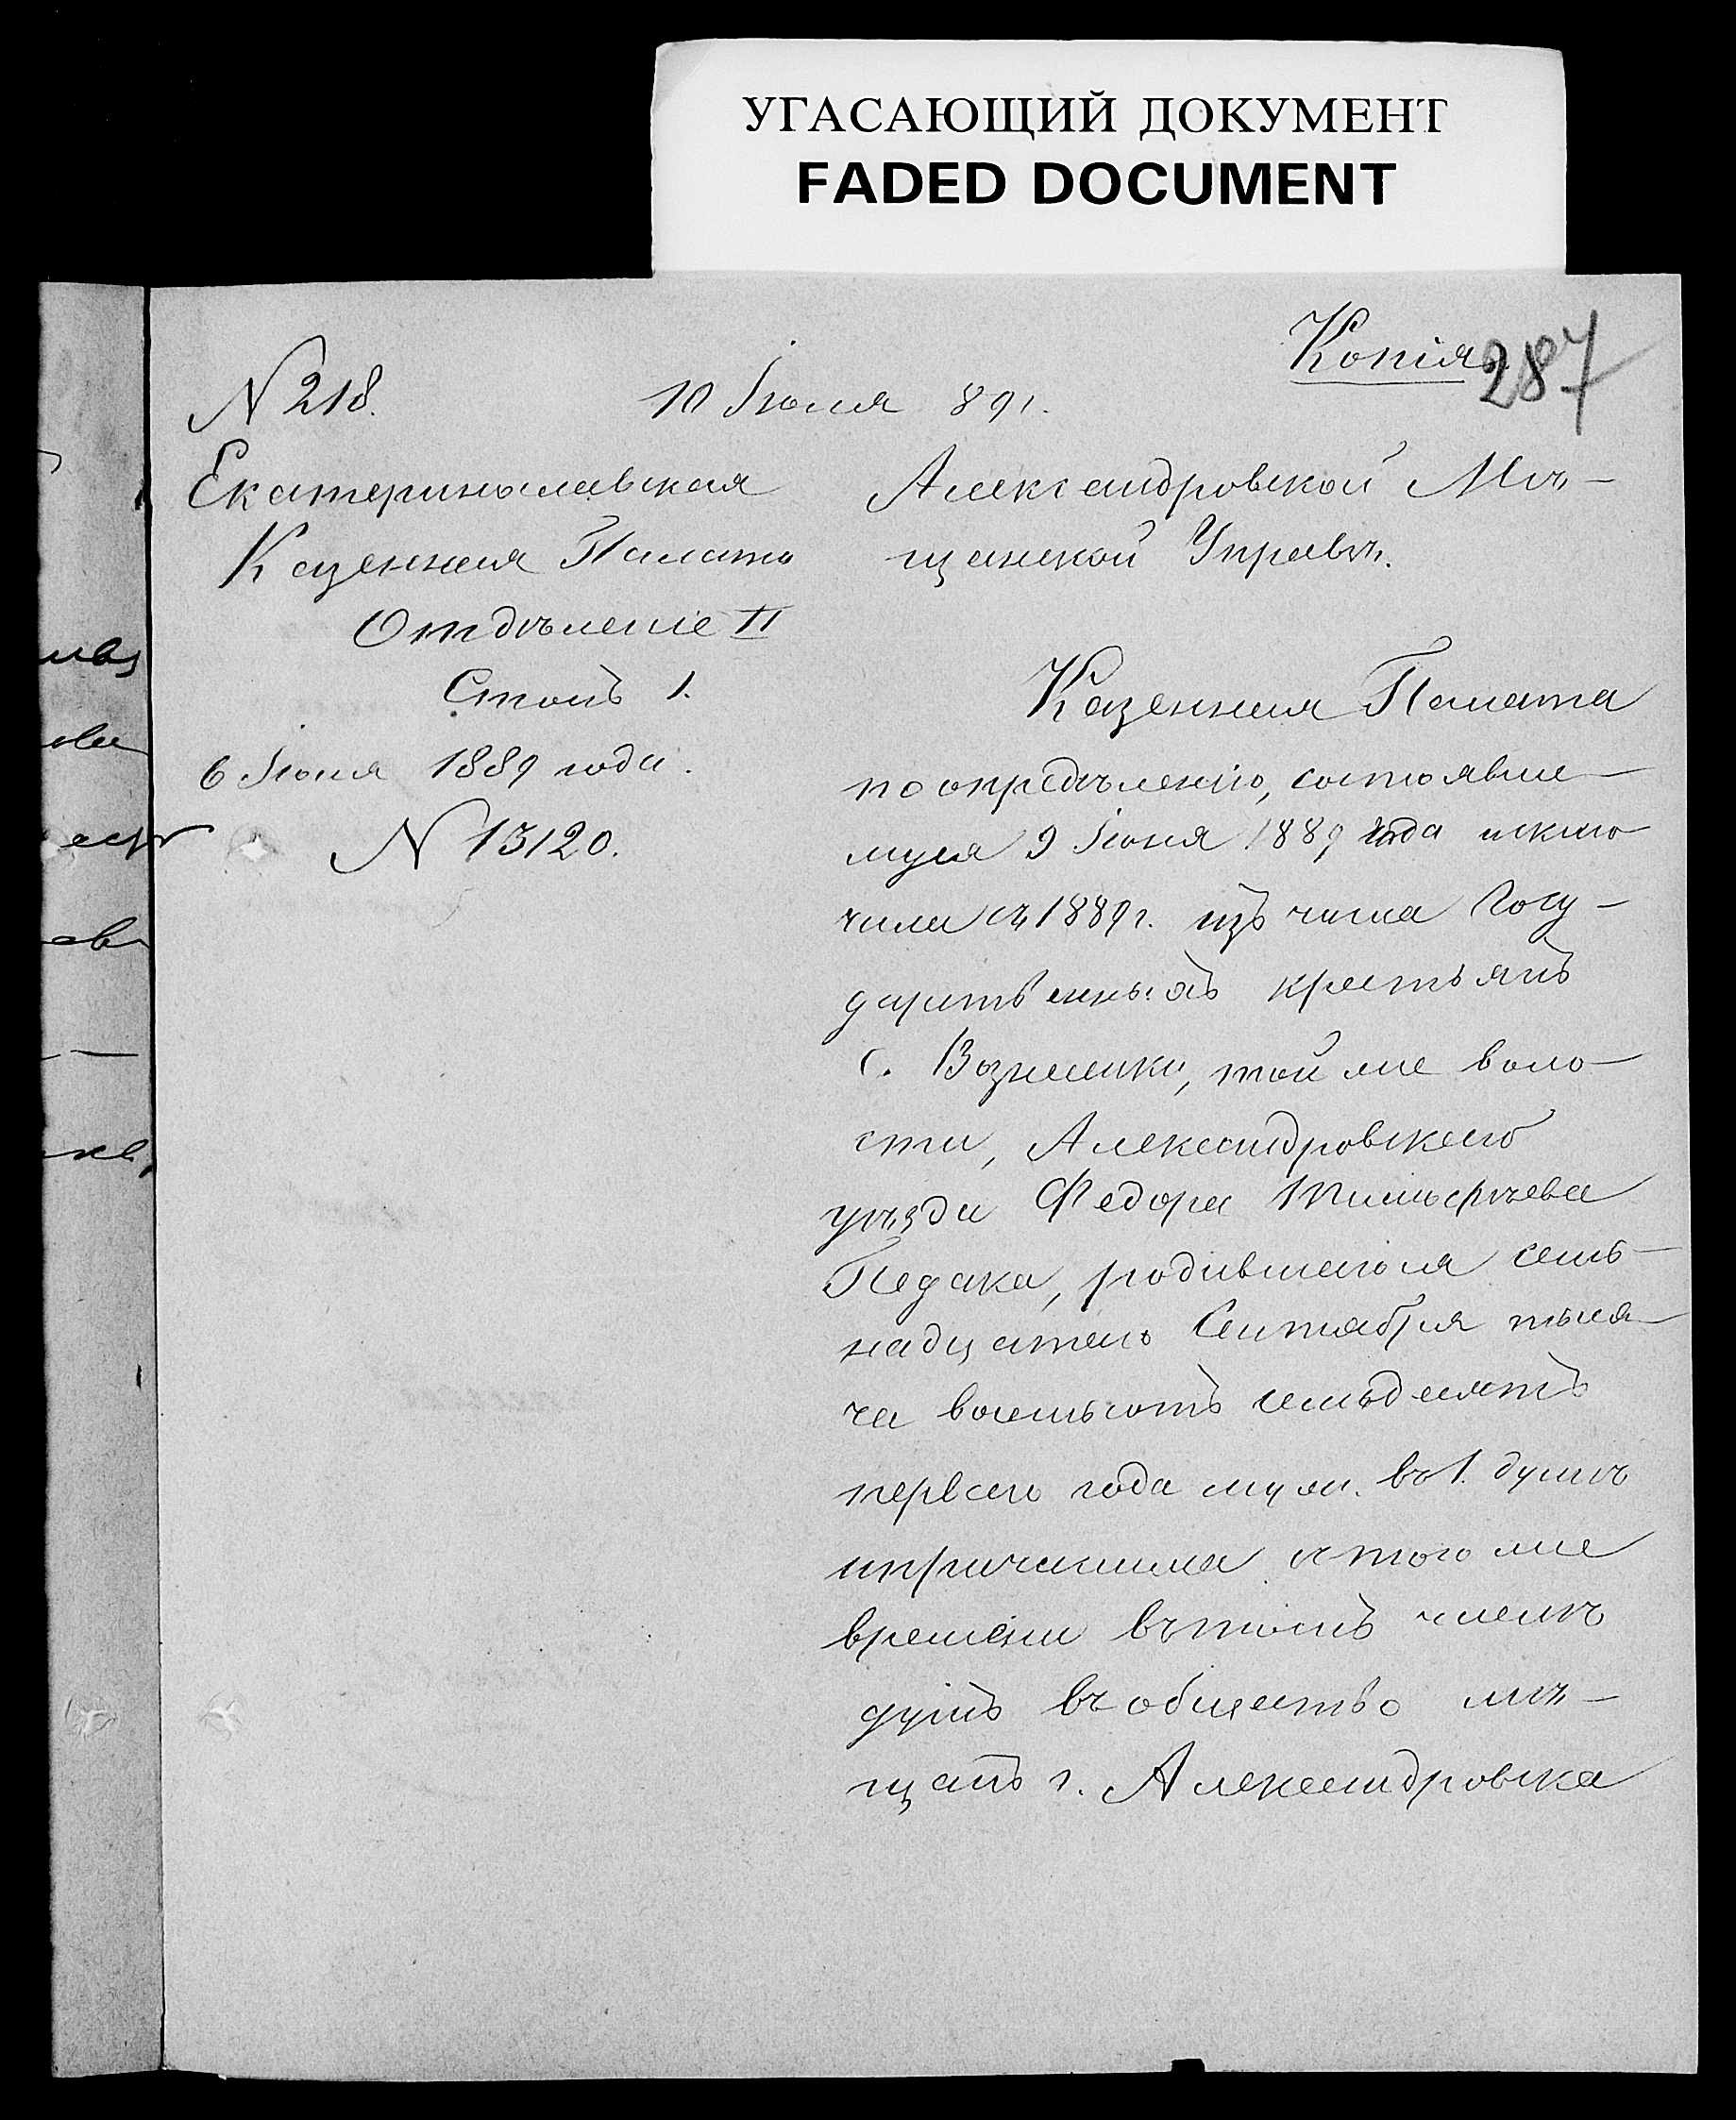 УГАСАЮЩИЙ ДОКУМЕНТ
FADED DOCUMENT
Копія.
287
N 218.
10 Іюля 891.
Екатеринославская
Казенная Палата
Отдѣленіе II
Столъ 1.
6 Іюля 1889 года.
N 13120.
Александровской Мѣ-
щанской Управѣ.
Казенная Палата
по опредѣленію, состоявше-
муся 9 Іюня 1889 года исклю-
чила съ 1889 г. изъ числа Госу-
дарственныхъ крестьянъ
с. Вознесенки, той же воло-
сти, Александровскаго
уѣзда Федора
родившагося семь-
надцатаго Сентября тыся-
ча восемьсотъ семьдесятъ
перваго года муж. въ 1. душѣ
и причислила съ того же
времени въ томъ числѣ
душъ въ общество мѣ-
щанъ г. Александровска